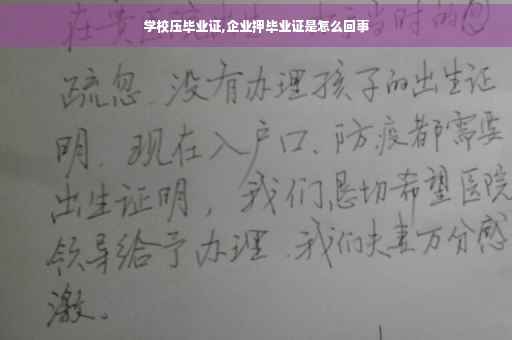 学校压毕业证,企业押毕业证是怎么回事
在贵 当时的
疏忽、没有办理孩子的出生证
明、现在入户口、防疫都需要
出生证明，我们恳切希望医院
领导给予办理、我们夫妻万分感
激。